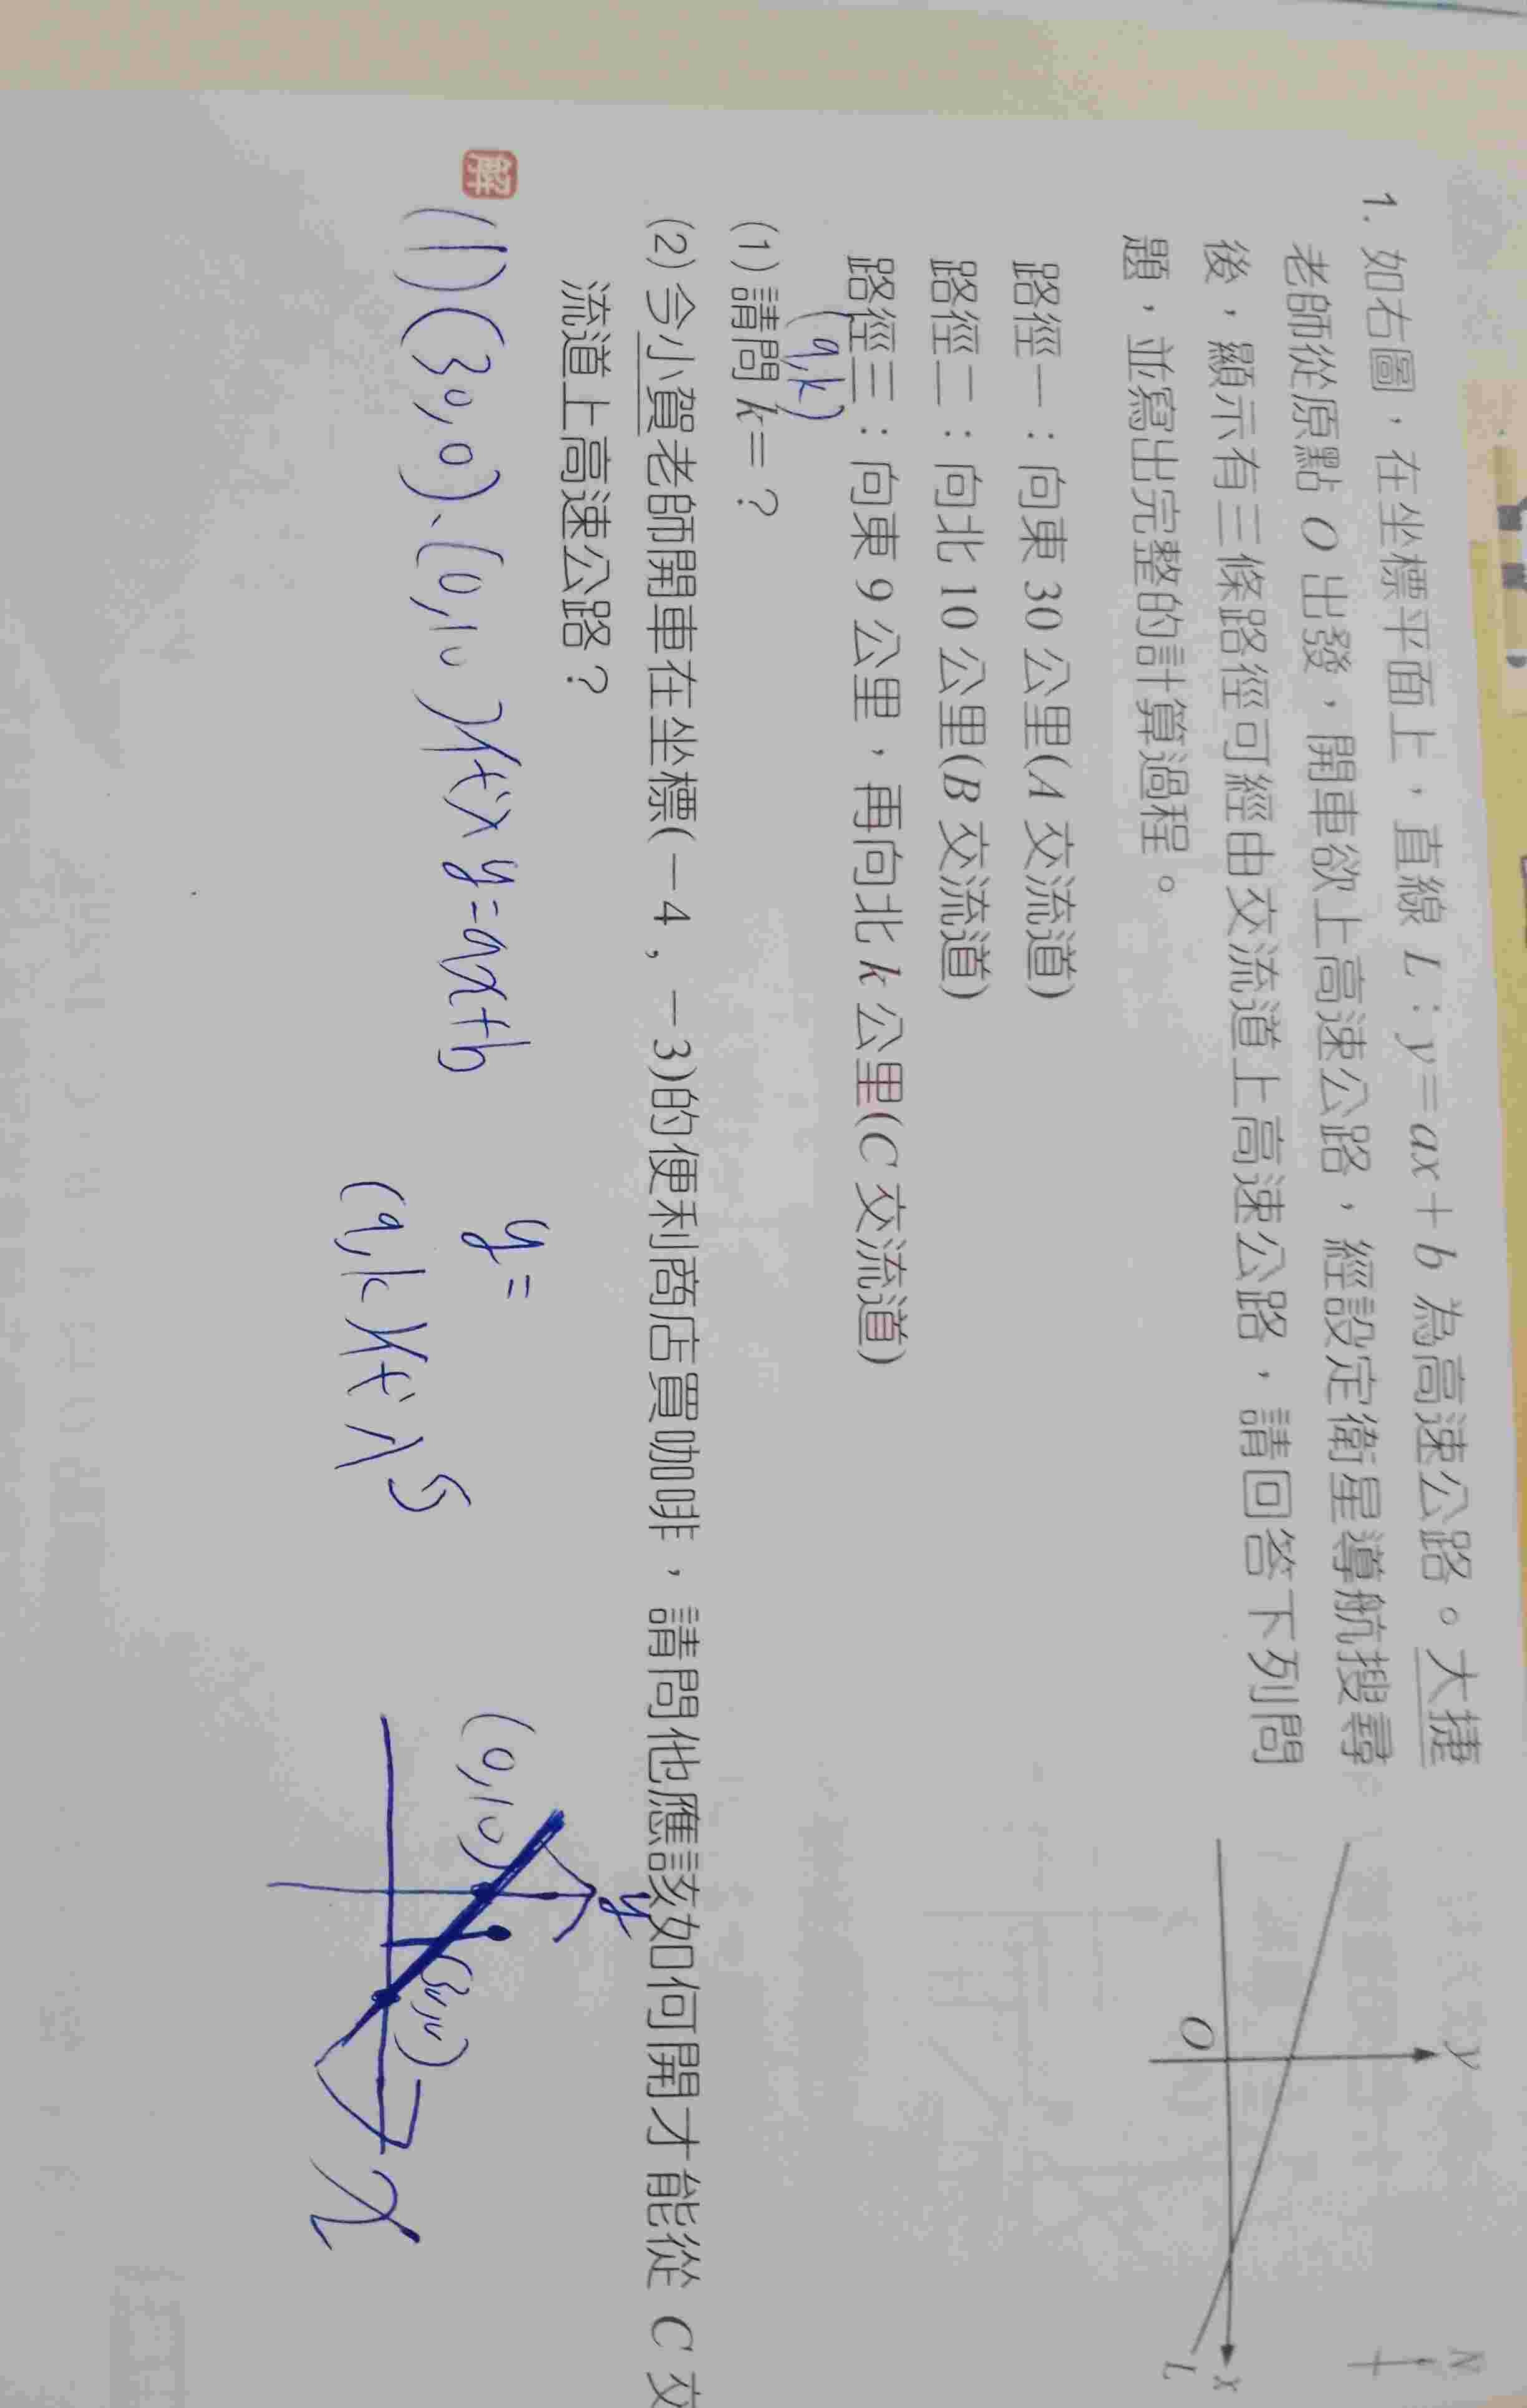 1. 如右圖，在坐標平面上，直線 L：y＝ax＋b 為高速公路。大捷
老師從原點 O 出發，開車欲上高速公路，經設定衛星導航搜尋
後，顯示有三條路徑可經由交流道上高速公路，請回答下列問
題，並寫出完整的計算過程。
y
O
x
L
N
路徑一：向東 30 公里(A 交流道)
路徑二：向北 10 公里(B 交流道)
路徑三：向東 9 公里，再向北 k 公里(C 交流道)
(9,k)
(1) 請問 k＝？
(2) 今小賀老師開車在坐標(－4，－3)的便利商店買咖啡，請問他應該如何開才能從 C 交
流道上高速公路？
解
(1) (30,0)、(0,10)代入 y=ax+b
y=
(9,k)代入
(0,10)
y
x